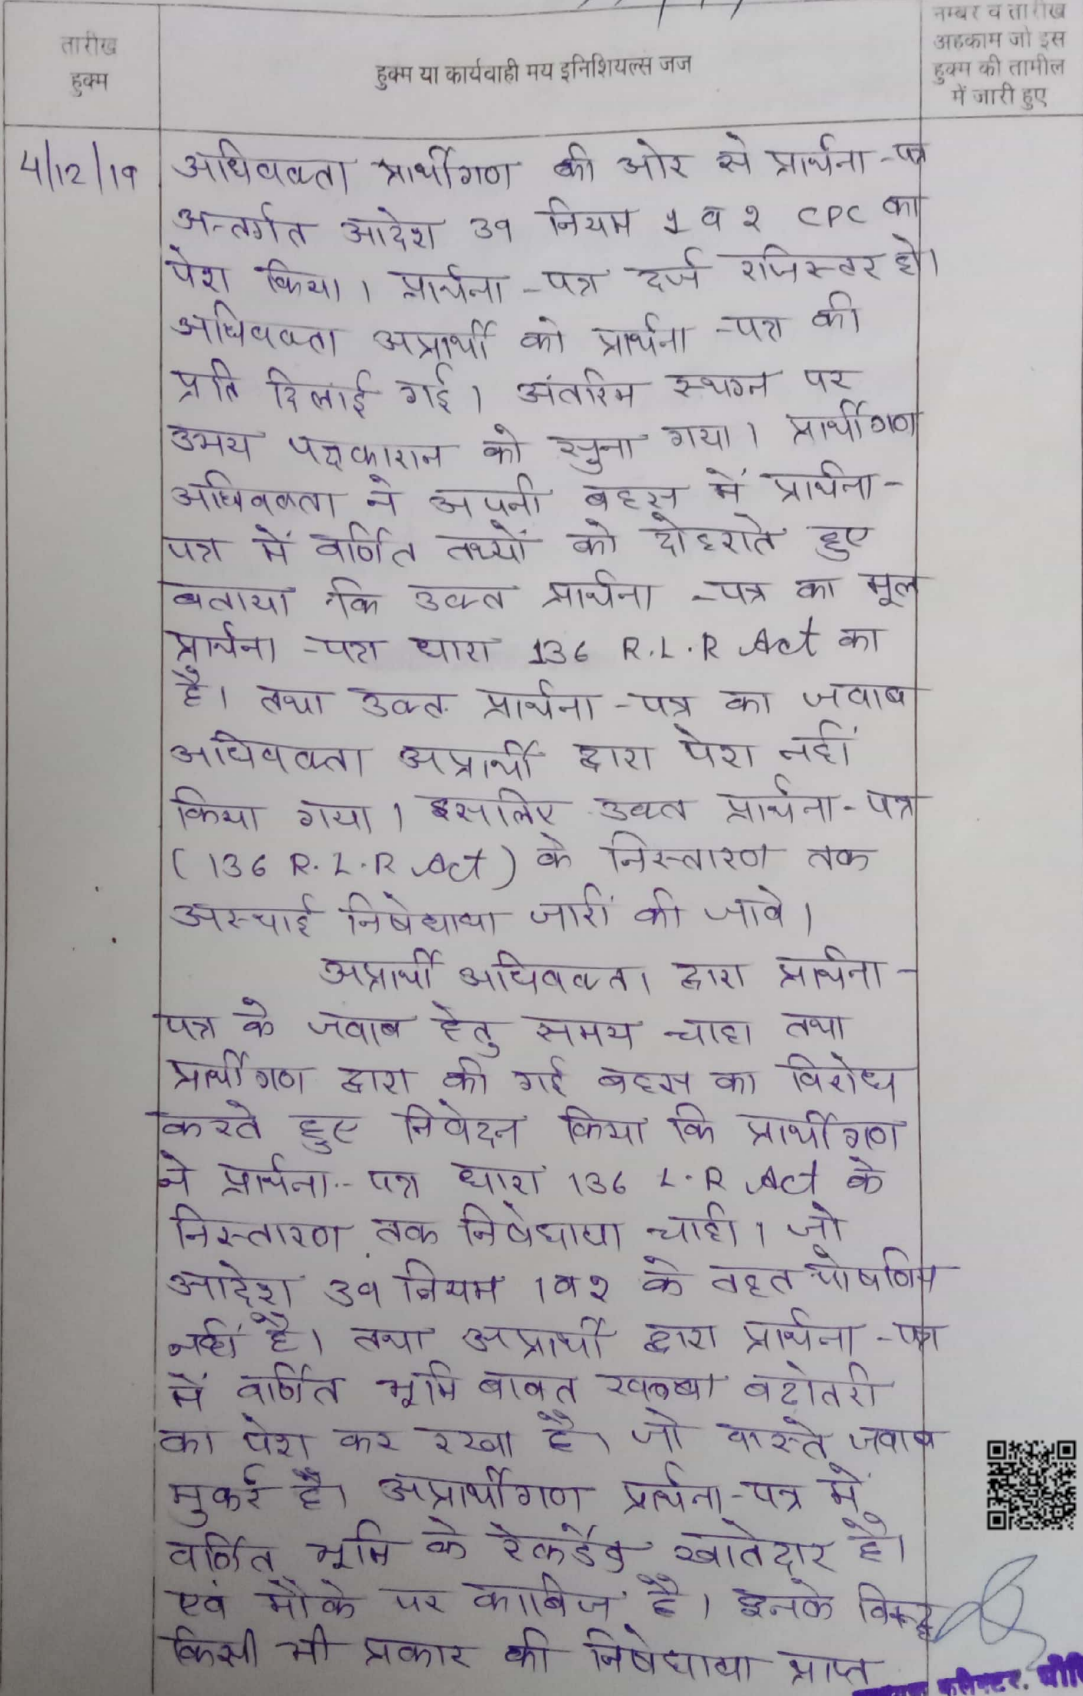 तारीख
हुक्म
हुक्म या कार्यवाही मय इनिशियल्स जज
नम्बर व तारीख
अहकाम जो इस
हुक्म की तामील
में जारी हुए
4/12/19 अधिवक्ता प्रार्थीगण की ओर से प्रार्थना-पत्र
अन्तर्गत आदेश 39 नियम 1 व 2 CPC का
पेश किया। प्रार्थना-पत्र दर्ज रजिस्टर हो।
अधिवक्ता अप्रार्थी को प्रार्थना-पत्र की
प्रति दिलाई गई। अंतरिम स्थगन पर
उभय पक्षकारान को सुना गया। प्रार्थीगण
अधिवक्ता ने अपनी बहस में प्रार्थना-
पत्र में वर्णित तथ्यों को दोहराते हुए
बताया कि उक्त प्रार्थना-पत्र का मूल
प्रार्थना-पत्र धारा 136 R.L.R Act का
है। तथा उक्त प्रार्थना-पत्र का जवाब
अधिवक्ता अप्रार्थी द्वारा पेश नहीं
किया गया। इसलिए उक्त प्रार्थना-पत्र
(136 R.L.R Act) के निस्तारण तक
अस्थाई निषेधाज्ञा जारी की जावे।
अप्रार्थी अधिवक्ता द्वारा प्रार्थना-
पत्र के जवाब हेतु समय चाहा तथा
प्रार्थीगण द्वारा की गई बहस का विरोध
करते हुए निवेदन किया कि प्रार्थीगण
ने प्रार्थना-पत्र धारा 136 L.R Act के
निस्तारण तक निषेधाज्ञा चाही। जो
आदेश 39 नियम 1 व 2 के तहत पोषणिय
नहीं है। तथा अप्रार्थी द्वारा प्रार्थना-पत्र
में वर्णित भूमि बाबत बटोतरी
का पेश कर रखा है। जो वास्ते जवाब
मुकर्र है। अप्रार्थीगण प्रार्थना-पत्र में
वर्णित भूमि के रेकर्डेड खातेदार है।
एवं मौके पर काबिज है। इनके विरूद्ध
किसी भी प्रकार की निषेधाज्ञा प्राप्त
कलेक्टर,